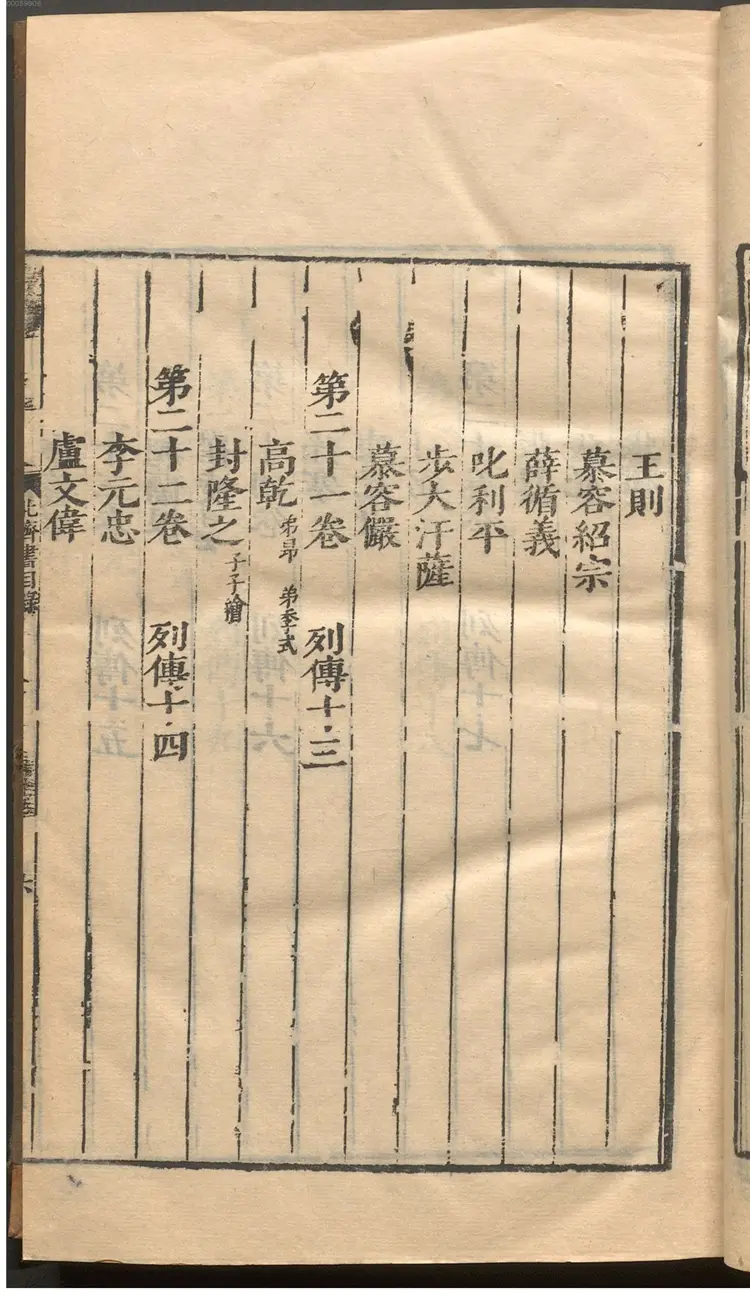 王則
慕容紹宗
薛循義
叱利平
步大汗薩
慕容儼
第二十一卷 列傳十三
高乾 弟昂 弟季式
封隆之 子子繪
第二十二卷 列傳十四
李元忠
盧文偉
北齊書目錄
六
00059908